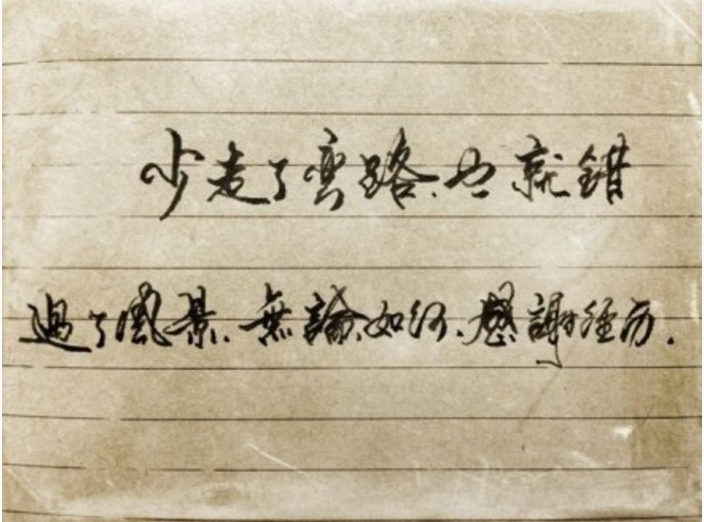 少走了弯路、也就錯
過了風景、無論如何、感謝经历.